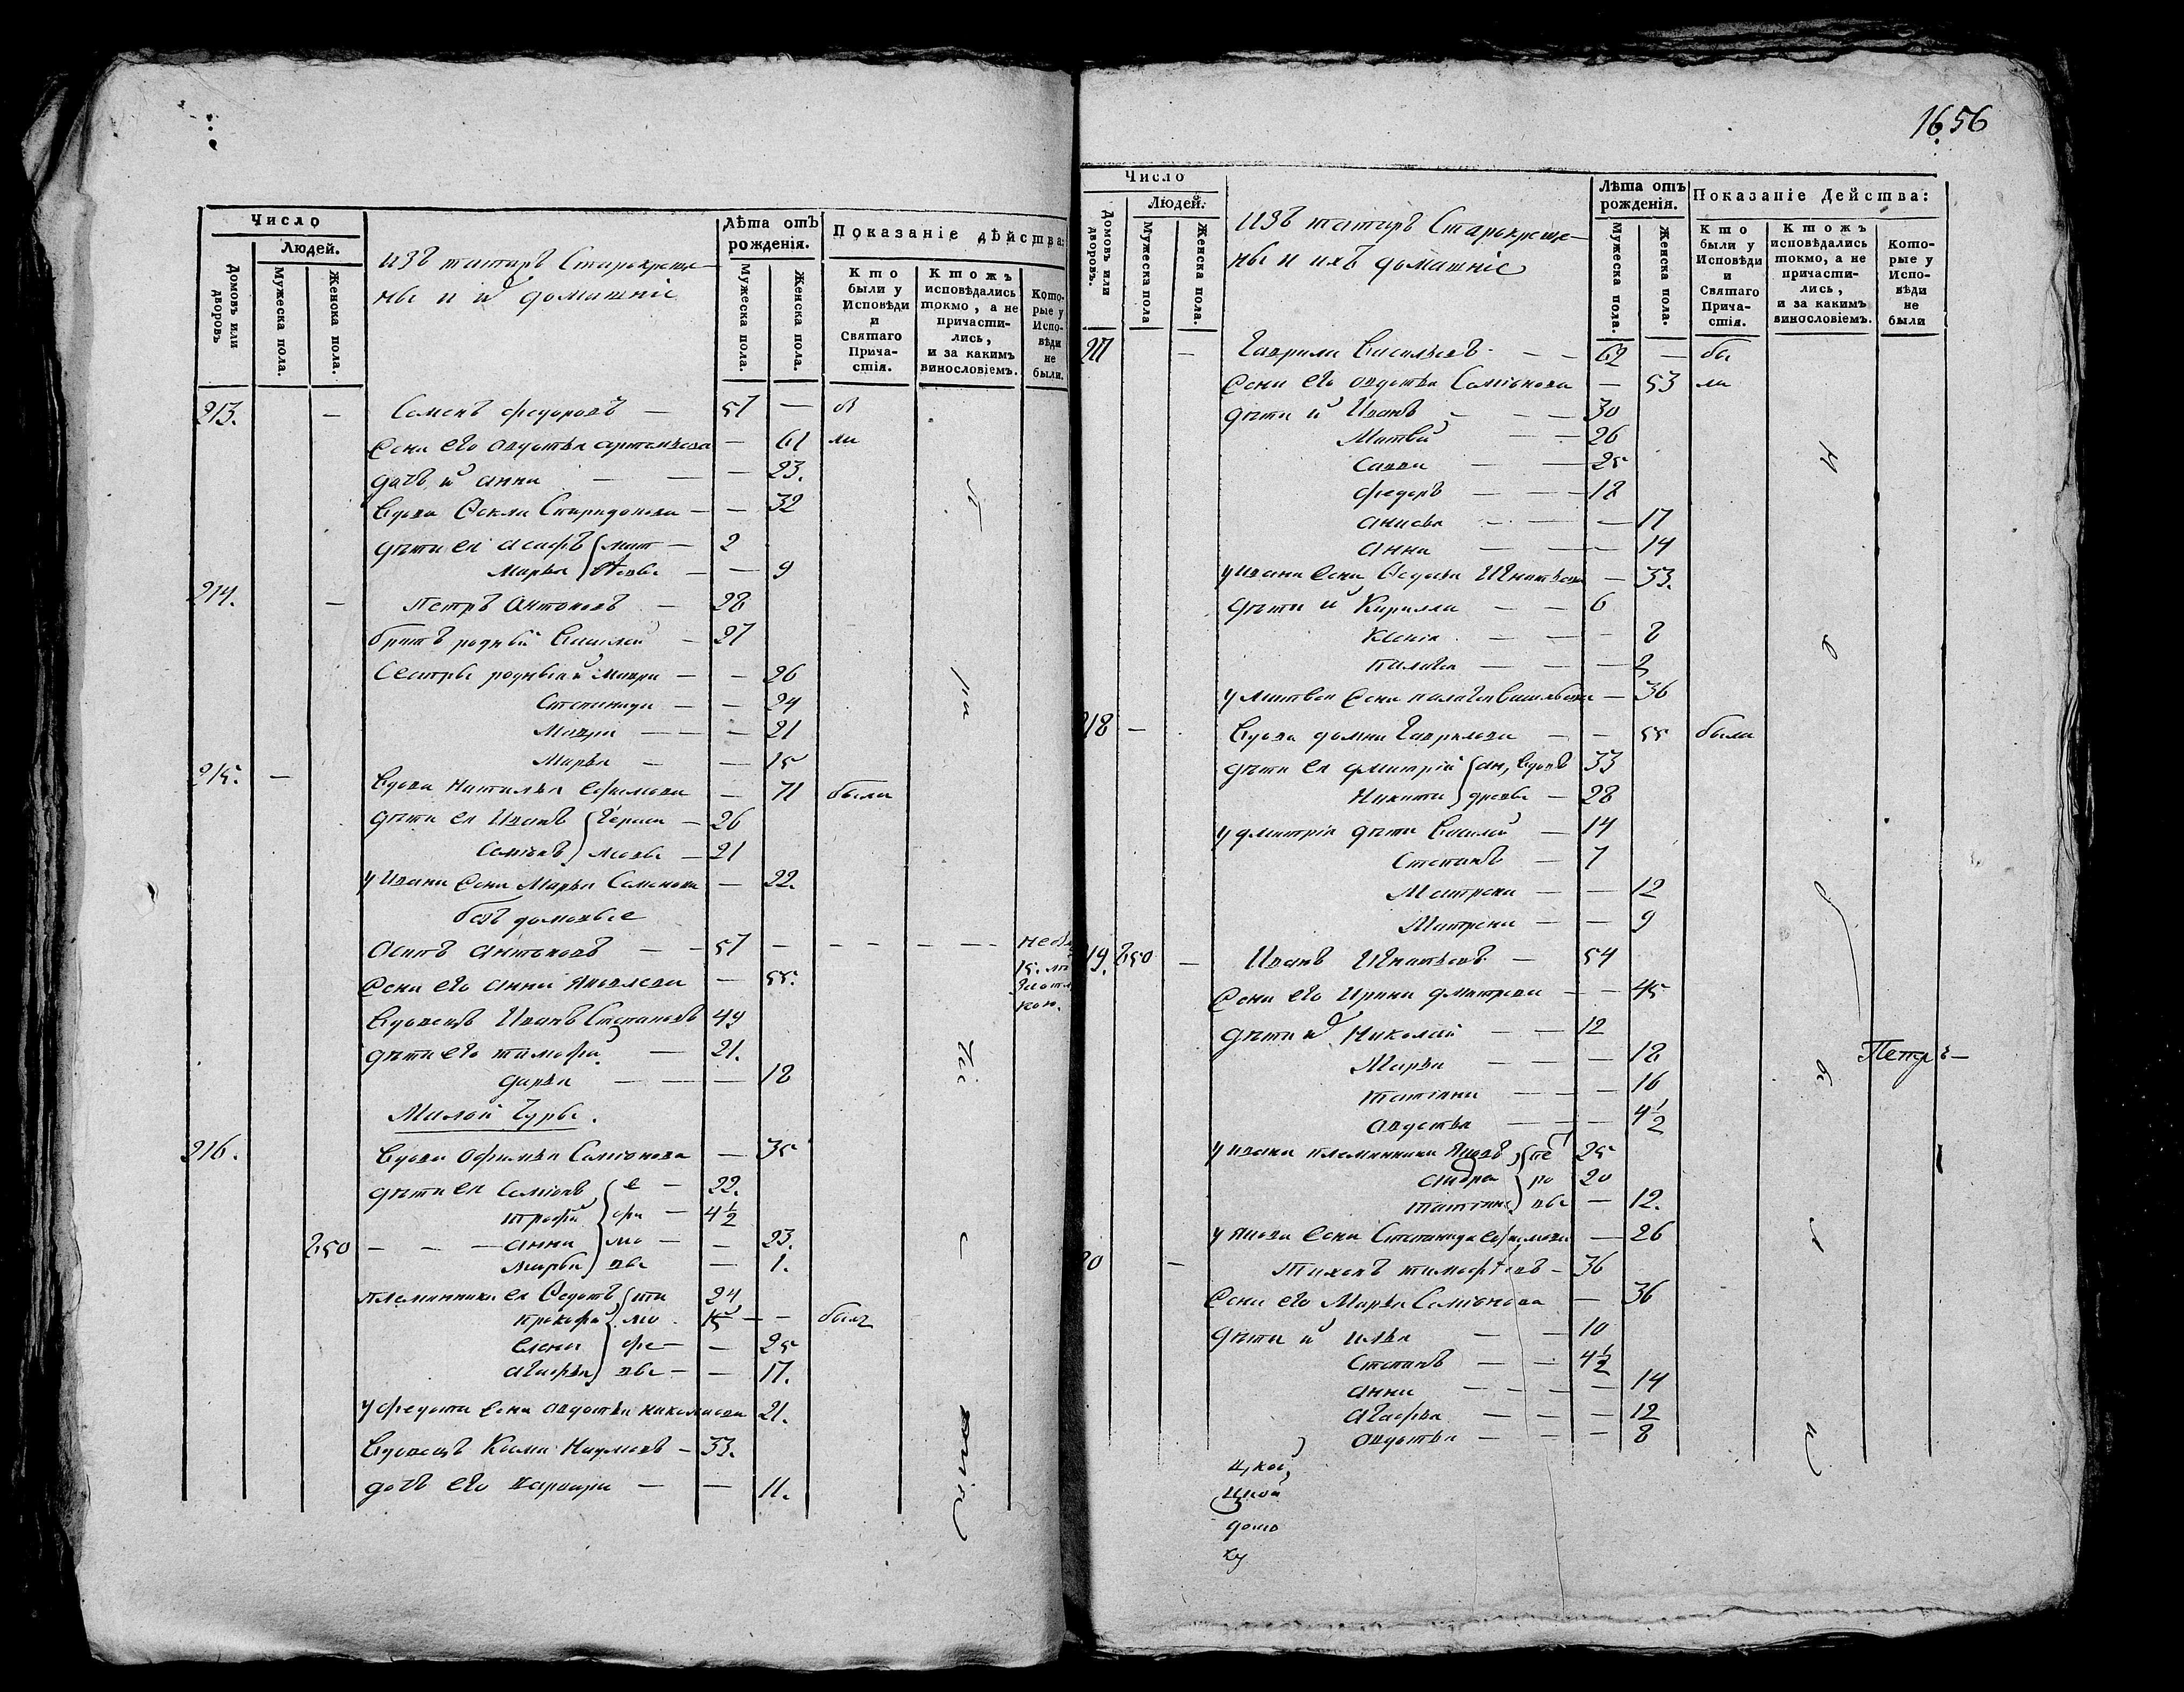 Число
Людей.
Домовъ или дворовъ
Мужеска пола.
Женска пола.
изъ татаръ Старокреще-
ны и их домашніе
Лѣта отъ рожденія.
Мужеска пола.
Женска пола.
Показаніе дѣйства:
Кто были у Исповѣди и Святаго Прича-стія.
Ктожъ исповѣдались токмо, а не причасти-лись, и за какимъ винословіемъ.
Кото-рые у Испо-вѣди не были.
213. — Семенъ Федоровъ — 57 —
Жена его Авдотья — 61 ли
дочь их Анна — — 23.
Вдова Фекла Спиридонова — — 32
дѣти ея Асафъ мат — 2
Марья вѣевы — — 9
214. — Петръ Антоновъ — 28
братъ родный Василей — 27
Сестры родныя их Мавра — — 26
Степанида — — 24
Мавра — — — 21
Марья — — 15
215. — Вдова Наталья Ефимова — 71 была
дѣти ея Иванъ Гераси — 26
Семіонъ мовы — 21
у Ивана жена Марья Семенова — 22.
без домовые
Осипъ Антоновъ — — 57 — — — — —
Жена его Анна Яковлева — 55.
Вдовецъ Иванъ Степановъ 49
дѣти его Тимофей — 21.
Дарья — — — 18
Малой Чуры.
216. Вдова Офимья Семіонова — 35
дѣти ея Семіонъ е — 22.
Трофим фи — 4½
250 — — — Анна мо — — 23.
Марья вы — 1.
племянники ея Федотъ ти 24
Прокофей мо 15 — — былъ
Елена фе — — 25
Агафья вы — — 17.
у Федота жена Авдотья Николаева 21.
Вдовецъ Козма Наумовъ — 33.
дочь его — — 11.
1656
Число
Людей.
Домовъ или дворовъ.
Мужеска пола
Женска пола.
изъ татаръ Старокреще-
ны и ихъ домашніе
Лѣта отъ рожденія.
Мужеска пола.
Женска пола.
Показаніе Действа:
Кто были у Исповѣди и Святаго Прича-стія.
Ктожъ исповѣдались токмо, а не причасти-лись, и за какимъ винословіемъ.
Кото-рые у Испо-вѣди не были
217 — Гаврила Васильевъ — — 62 — бы
Жена его Авдотья Семіонова — 53 ли
дѣти их Иванъ — — — 30
Матвей — — 26
Савва — — 25
Федоръ — — — 18
Анисья — — — 17
Анна — — — 14
у Ивана жена Федосья Игнатьева — 33.
дѣти их Кирилла — — 6
Ксенія — — — 8
Палагея — — — 2
у Матвея жена Палагея Васильева — 36
218 — Вдова Домна Гаврилова — — 55 была
дѣти ея Дмитрій ан, Вдовъ 33
Никита дреевы — 28
у Дмитрія дѣти Василей — 14
Степанъ — 7
Матрена — — 12
Матрена — — 9
219. 250 — Иванъ Игнатьевъ — 54
Жена его Ирина Дмитрева — — 45
дѣти их Николай — — 12
Марья — — — 18
Татіяна — — — 16
Авдотья — — — 4½
Петр
у Ивана племянники Яковъ пе 25
ро 20
Татіяна вы — 12.
у Якова жена Степанида Ефимова — 26
20 — Тихонъ Тимофѣевъ — 36
Жена его Марья Семіонова — 36
дѣти их Илья — — 10
Степанъ — — 4½
Анна — — — — 14
Агафья — — — 12
Авдотья — — — 8